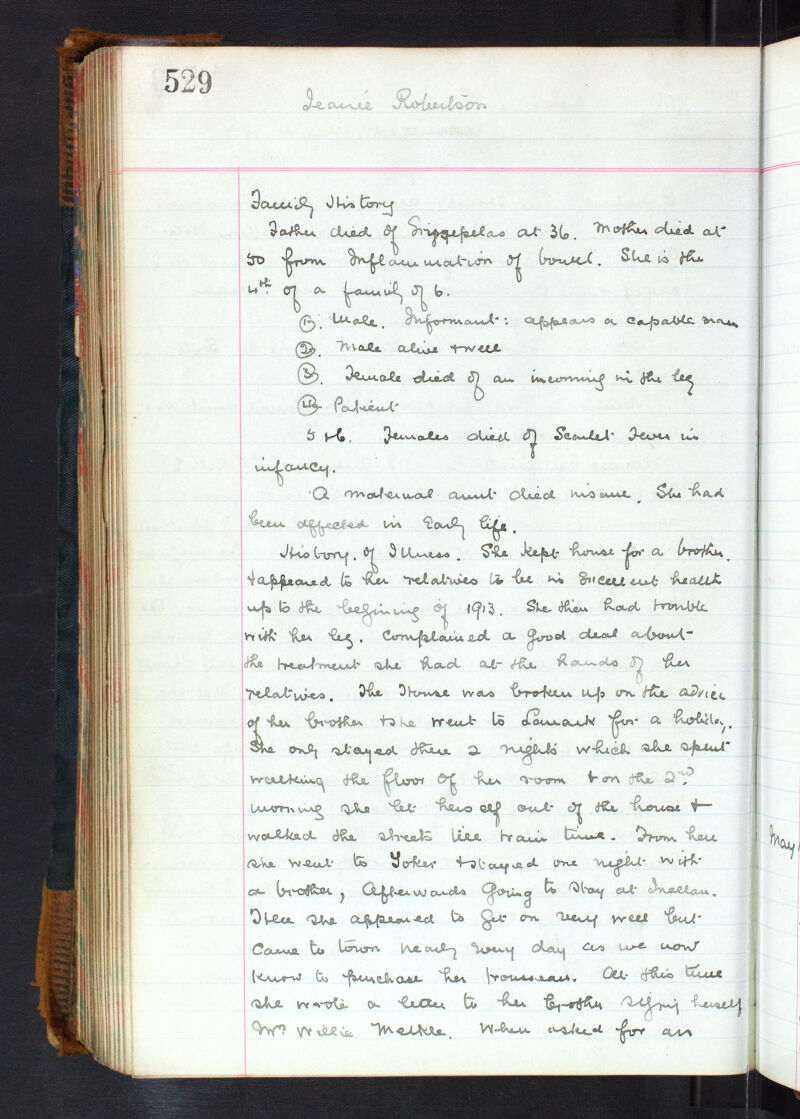 529
Jeanie Robertson
Family History
Father died of Erysepelas at 36. Mother died at
50 from Inflammation of bowel. She is the
4th. of a family of 6.
(1). Male. Informant: appears a capable man
(2). Male alive + well
(3). Female died of an incoming in the leg
(4) Patient
5 + 6. Females died of Scarlet Fever in
infancy.
A maternal aunt died insane. She had
been affected in Early life.
History. of Illness. She kept house for a brother.
+ appeared to her relatives to be in Excellent health
up to the begining of 1913. She then had trouble
with her leg. Complained a good deal about
the treatment she had at the hands of her
relatives. The House was broken up on the advice
of her brother + she went to Lanark for a holiday.
She only stayed there 2 nights which she spent
walking the floor of her room + on the 2nd.
morning she let herself out of the house +
walked the streets till train time. From here
she went to Yoker + stayed one night with
a brother, Afterwards going to stay at Inellan.
Here she appeared to get on very well but
came to town nearly every day as we now
know to purchase her trousseau. At this time
she wrote a letter to her brother signing herself
Mrs Willie Meikle. When asked for an
May